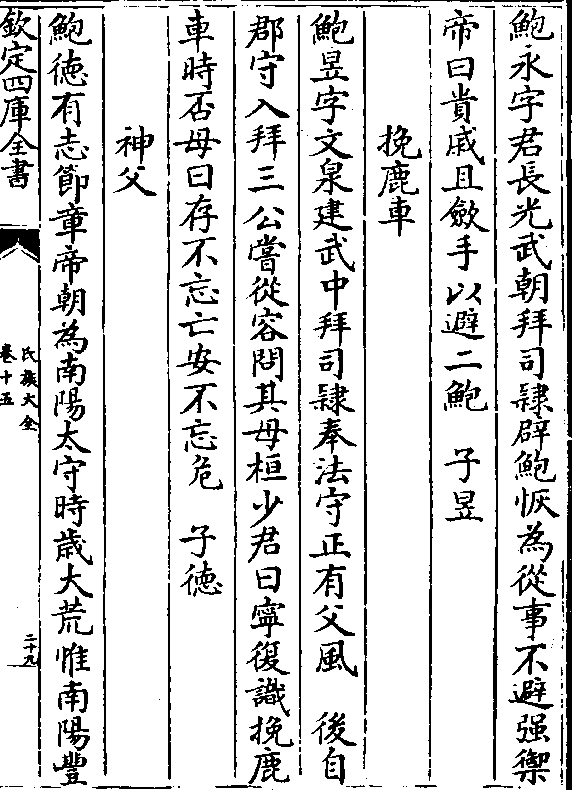 鮑永字君長光武朝拜司隷辟鮑恢為從事不避强禦
帝曰貴戚且斂手以避二鮑　子昱
挽鹿車
鮑昱字文泉建武中拜司隷奉法守正有父風　後自
郡守入拜三公嘗從容問其母桓少君曰寧復識挽鹿
車時否母曰存不忘亡安不忘危　子徳
神父
鮑徳有志節章帝朝為南陽太守時歳大荒惟南陽豐
欽定四庫全書
氏族大全
卷十五
二十九